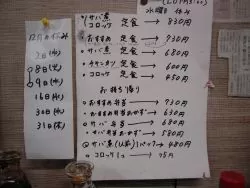 水曜日 休み
○サバ煮 定食→830円
コロッケ
○おすすめ 定食→730円
○サバ煮 定食→680円
○チキンカツ 定食→600円
○コロッケ 定食→450円
お持ち帰り
○おすすめ弁当→730円
○おすすめ弁当おかず→630円
○サバ弁当→680円
○サバ弁当おかず→580円
○サバ煮 1パック→480円
○コロッケ1コ→75円
12月の休み
2日(水)
8日(火)
9日(水)
16日(水)
30日(水)
31日(木)